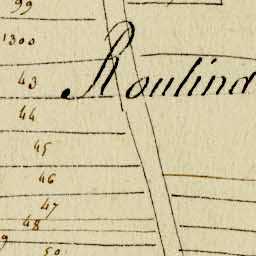 99
1300
Roulind
43
44
45
46
47
48
9
50